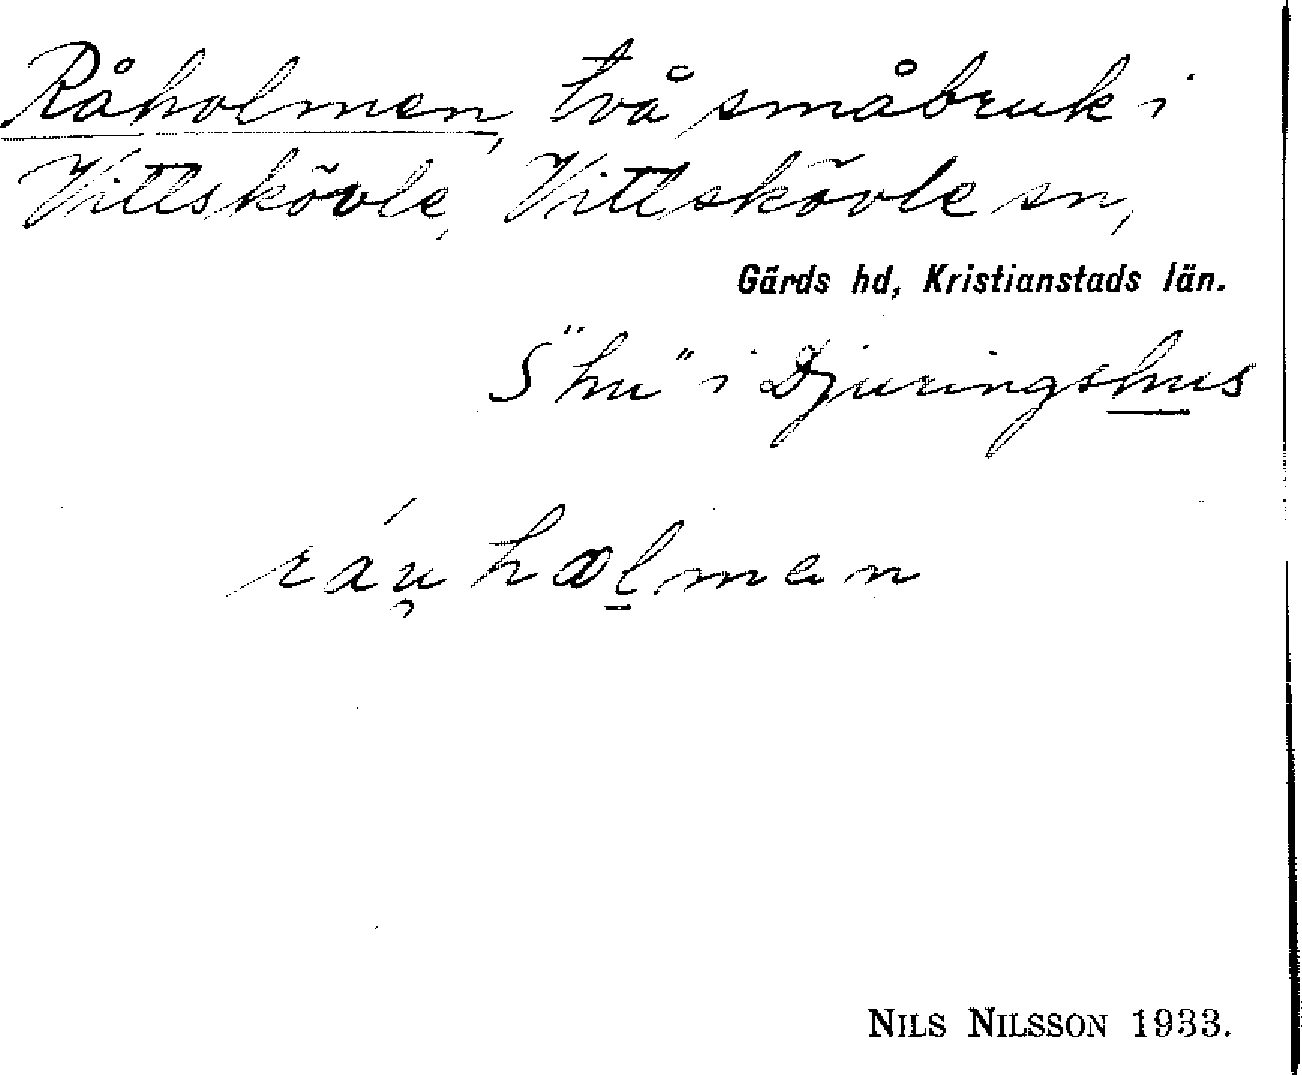 Råholmen, två småbruk i
Vittskövle, Vittskövle sn,
Gärds hd, Kristianstads län.
S "hu" i Djuringshus
ráu̯ hol̠man
NILS NILSSON 1933.